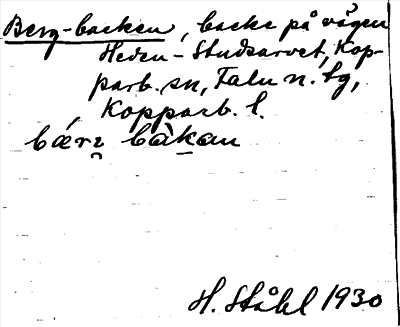 Berg-backen, backe på vägen
Heden-Studsarvet, Kop-
parb. sn, Falu n. tg,
Kopparb. l.
bærg bàkan
H. Ståhl 1930